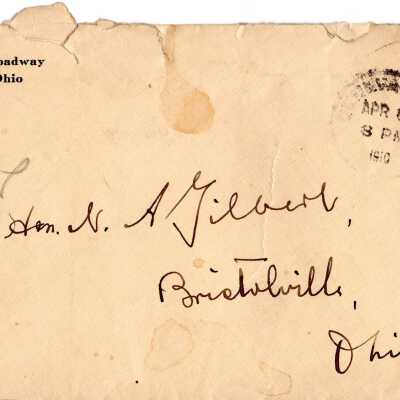 oadway
Ohio
APR 8
8 PM
1910
Hon. N. A Gilbert,
Bristolville,
Ohi